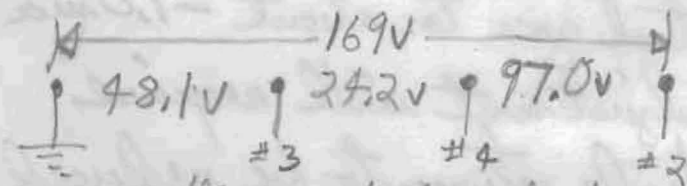 169V
48.1V 24.2V 97.0V
#3 #4 #2